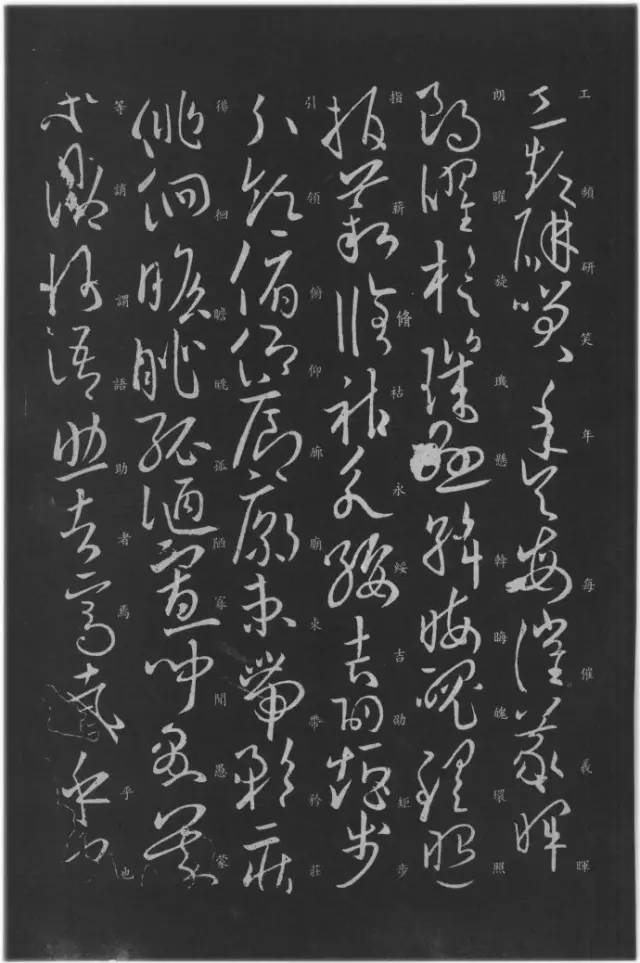 工頻研笑年矢每催義暉
朗曜旋璣懸斡晦魄環照
指薪脩祜永綏吉劭矩步
引領俯仰廊廟束帶矜莊
徘徊瞻眺孤陋寡聞愚蒙
等誚謂語助者焉哉乎也